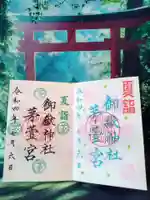 夏詣
御嶽神社
茅萱宮
令和四年七月六日
夏詣
御嶽神社
茅萱宮